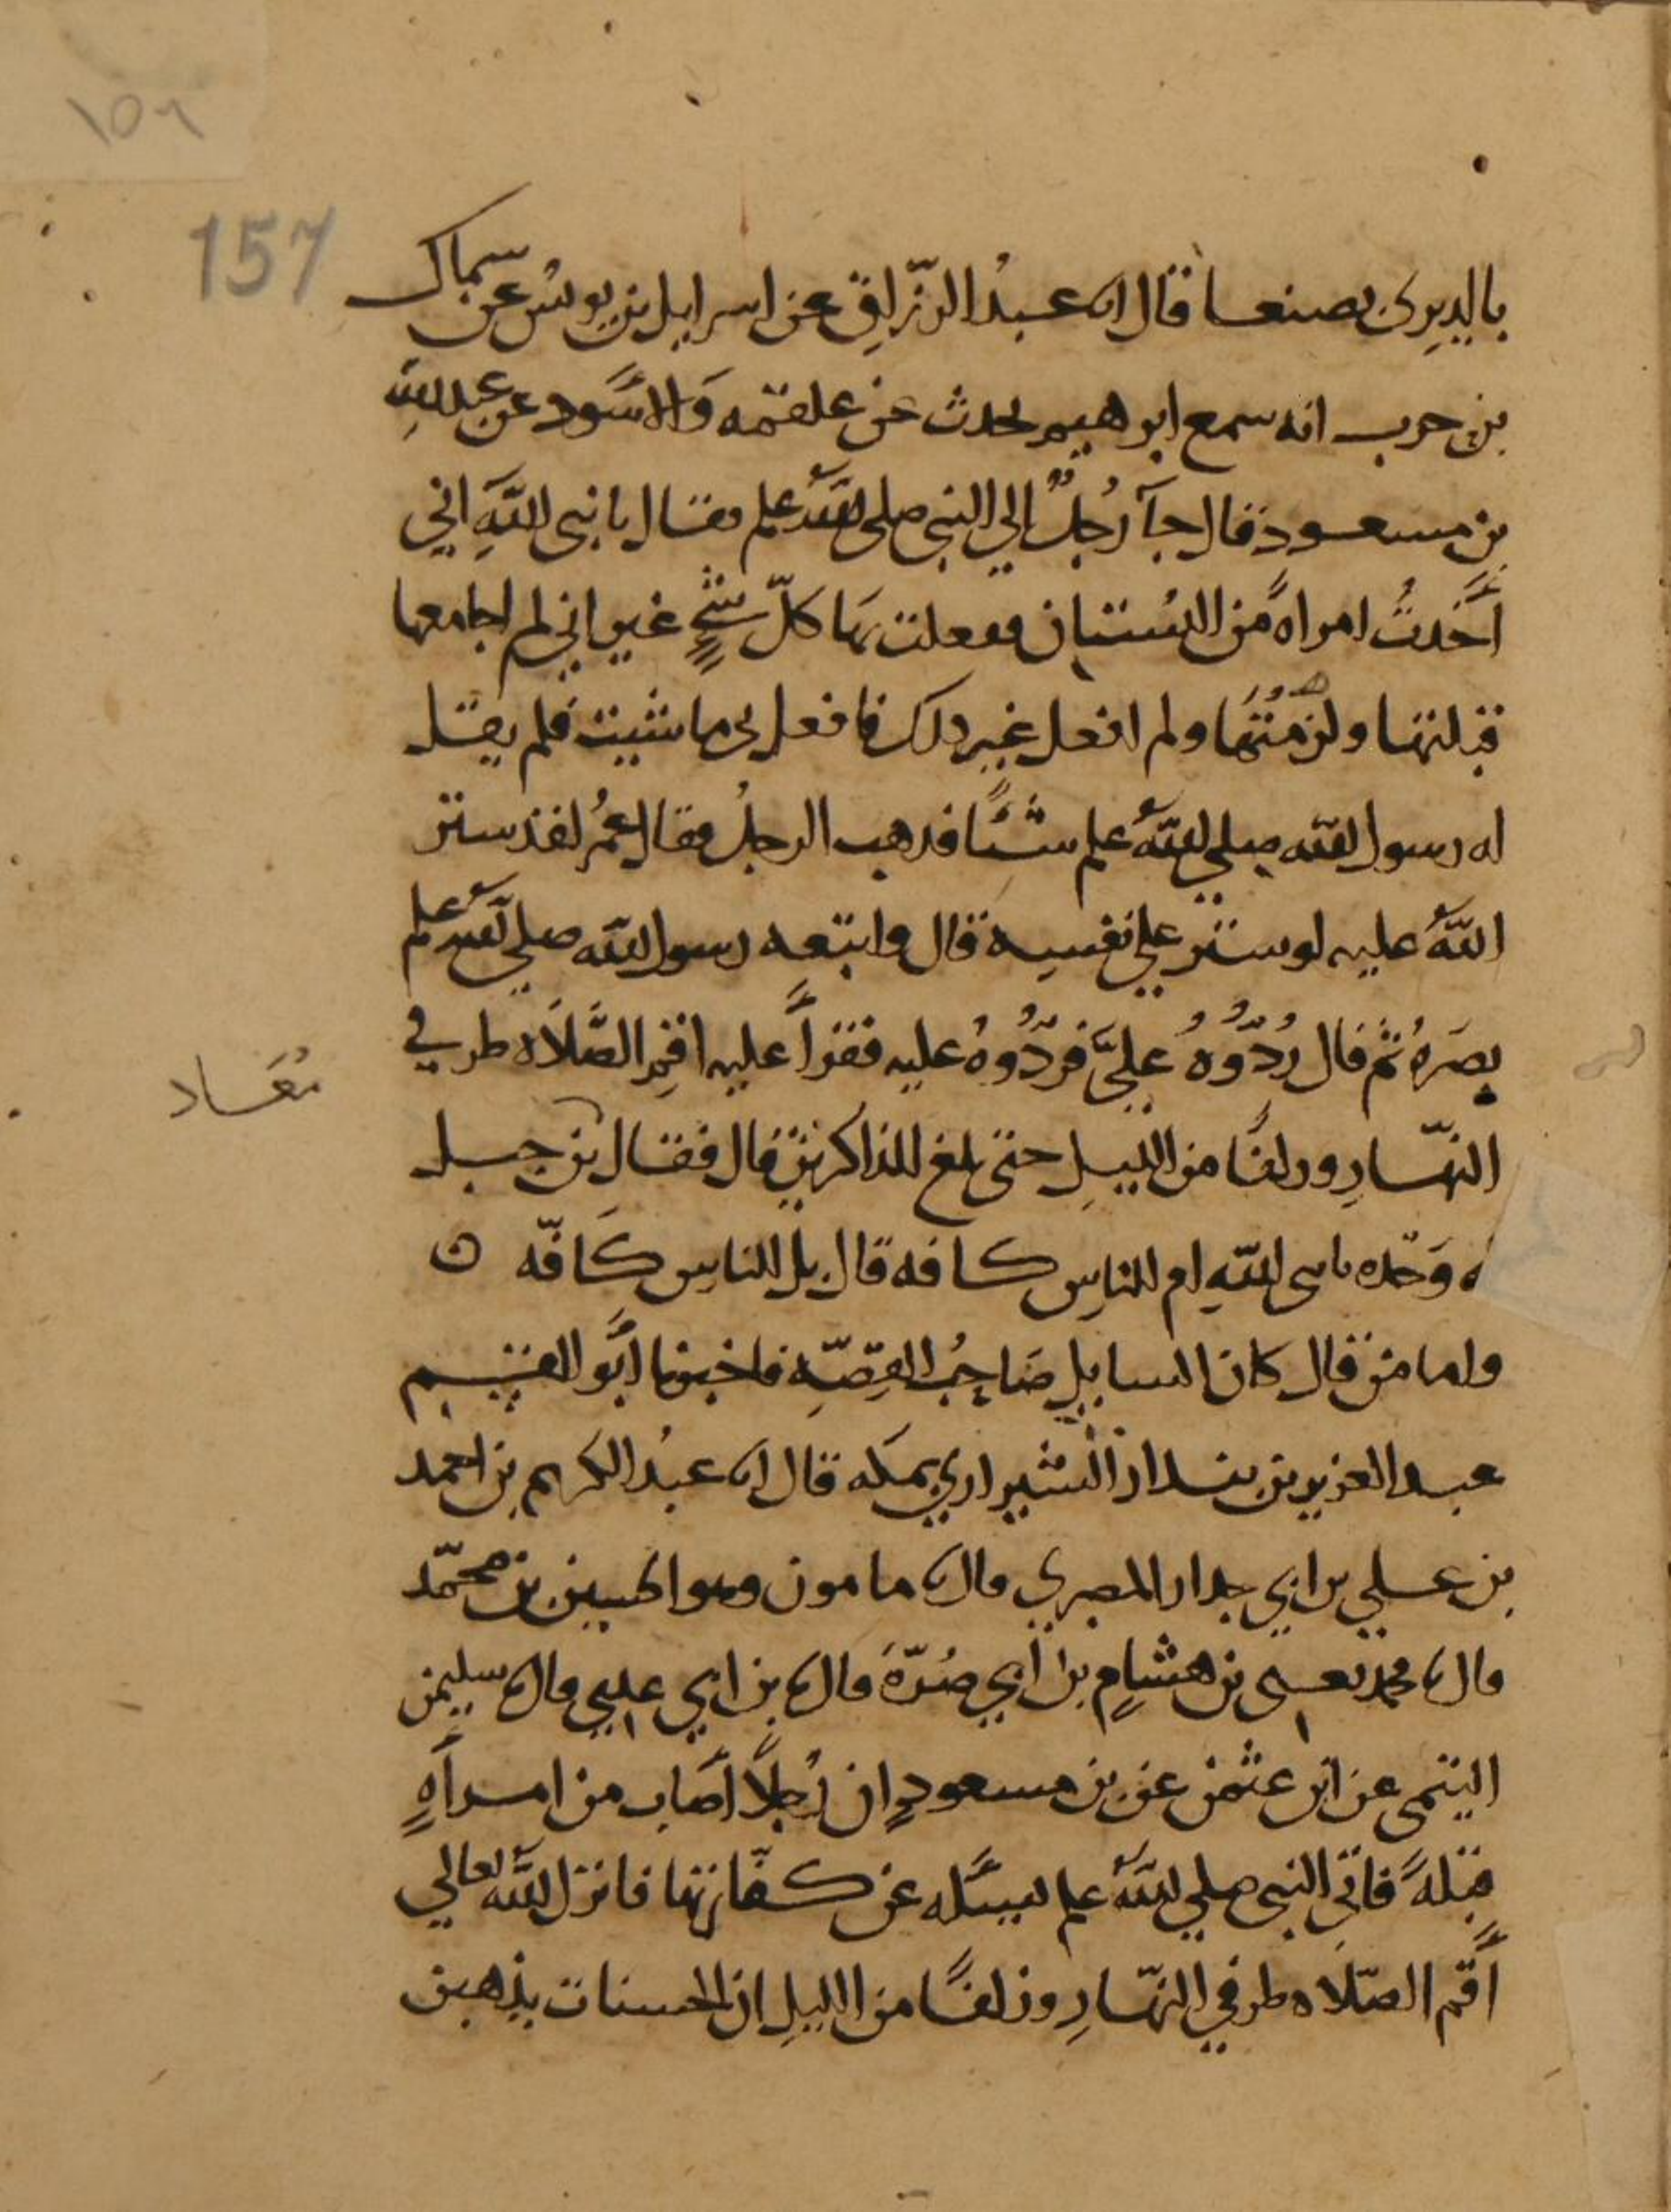 ١٥٦
157
بالديري بصنعا قال اىا عبدُ الرّزاقِ عن اسرايل بن يونس عن سماك
بن حرب انه سمع ابرهيم يحدث عن علقمه وَالاسَود عن عبد اللهِ
بن مسعود قال جآ رُجلٌ الي النبي صلى الله علم فقال يا نبي اللهِ اني
أَخَدتُ امراهً من البُستان ففعلت بهَا كلّ شيٍ غير اني لم اجامعها
قبلتها ولزمْتُهَا ولم افعل غير دلك فافعل بي ما شيت فلم يقل
له رسول الله صلي اللهُ علم شيًا فدهب الرجلُ فقال عمُر لقد ستر
اللهُ عليه لو ستر علي نفسه قال واتبعه رسول الله صلي الله علم
بصَرهُ ثم قال رُدّوُه عليَّ فردُّوهُ عليه فقرأَ عليه اقمِ الصَّلَاه طرفي
النهّارِ وزلفًا من الليلِ حتى بلغ للذاكرينِ قال فقال بن جبل
مُعَاد
له وَحّده يا نبي اللهِ ام للناسِ كافه قال بل للناسِ كَافّه ٥
واما من قال كان السايل صَاحبُ القِصّهِ فاخبرنا ابَو القسم
عبد العزيز بن بندار الشيرازي بمكه قال اىا عبدُ الكريم بن احمد
بن علي بن ابي جدار المصري قالىا مامون وهو الحسين بن محمّد
قالىا محمد يعني بن هشامٍ بن ابي خِيَرَة قالىا بن ابي عدي قالىا سليمن
التيمي عن ابي عثمن عن بن مسعودٍ ان رُجلًا اصَاب من امرأهٍ
قبلهً فاتي النبي صلي اللهُ علم يسَله عن كفّارتها فانزل اللهُ تعالي
أَقم الصّلَاه طرفي النهّارِ وزلفًا من الليلِ ان الحسنات يذهبن